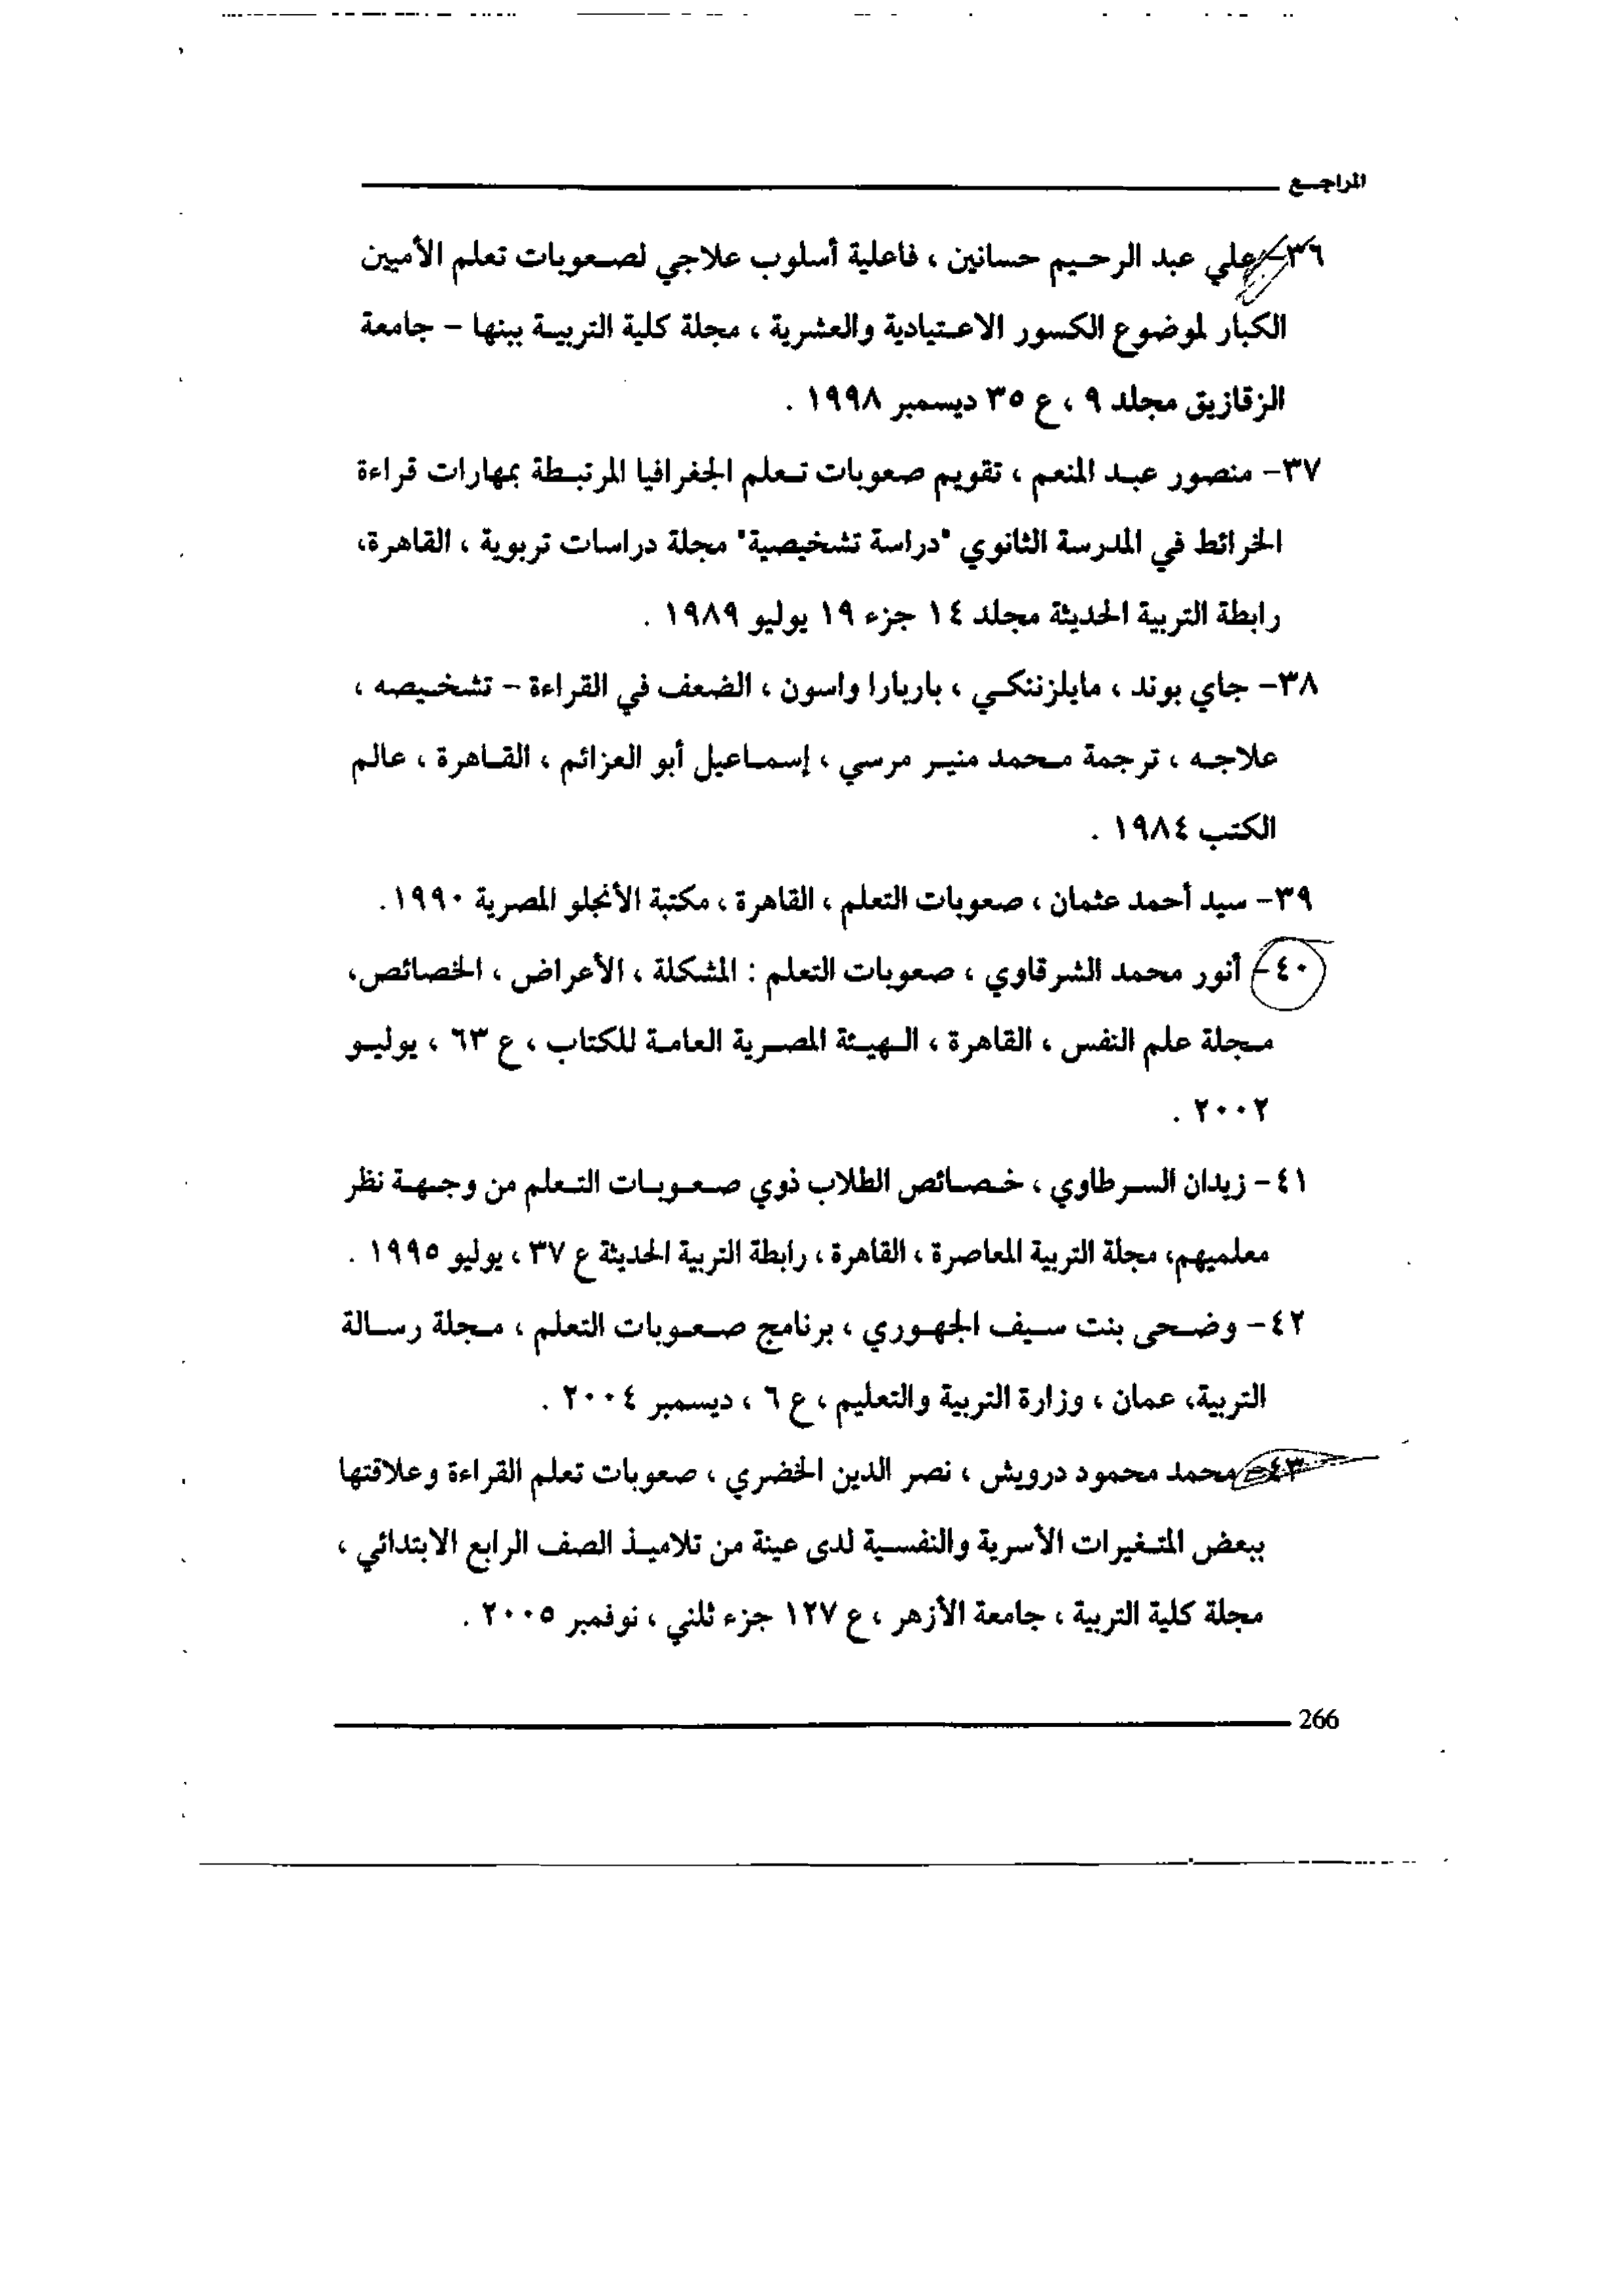 المراجع
٣٦- علي عبد الرحيم حسانين ، فاعلية أسلوب علاجي لصعوبات تعلم الأميين
الكبار لموضوع الكسور الاعتيادية والعشرية ، مجلة كلية التربية ببنها – جامعة
الزقازيق مجلد ٩ ، ع ٣٥ ديسمبر ١٩٩٨ .
٣٧- منصور عبد المنعم ، تقويم صعوبات تعلم الجغرافيا المرتبطة بمهارات قراءة
الخرائط في المدرسة الثانوي "دراسة تشخيصية" مجلة دراسات تربوية ، القاهرة،
رابطة التربية الحديثة مجلد ١٤ جزء ١٩ يوليو ١٩٨٩ .
٣٨- جاي بوند ، مايلزننكي ، باربارا واسون ، الضعف في القراءة – تشخيصه ،
علاجه ، ترجمة محمد منير مرسي ، إسماعيل أبو العزائم ، القاهرة ، عالم
الكتب ١٩٨٤ .
٣٩- سيد أحمد عثمان ، صعوبات التعلم ، القاهرة ، مكتبة الأنجلو المصرية ١٩٩٠.
٤٠- أنور محمد الشرقاوي ، صعوبات التعلم : المشكلة ، الأعراض ، الخصائص،
مجلة علم النفس ، القاهرة ، الهيئة المصرية العامة للكتاب ، ع ٦٣ ، يوليو
٢٠٠٢ .
٤١- زيدان السرطاوي ، خصائص الطلاب ذوي صعوبات التعلم من وجهة نظر
معلميهم، مجلة التربية المعاصرة ، القاهرة ، رابطة التربية الحديثة ع ٣٧ ، يوليو ١٩٩٥ .
٤٢- وضحى بنت سيف الجهوري ، برنامج صعوبات التعلم ، مجلة رسالة
التربية، عمان ، وزارة التربية والتعليم ، ع ٦ ، ديسمبر ٢٠٠٤ .
٤٣- محمد محمود درويش ، نصر الدين الخضري ، صعوبات تعلم القراءة وعلاقتها
ببعض المتغيرات الأسرية والنفسية لدى عينة من تلاميذ الصف الرابع الابتدائي ،
مجلة كلية التربية ، جامعة الأزهر ، ع ١٢٧ جزء ثلني ، نوفمبر ٢٠٠٥ .
266